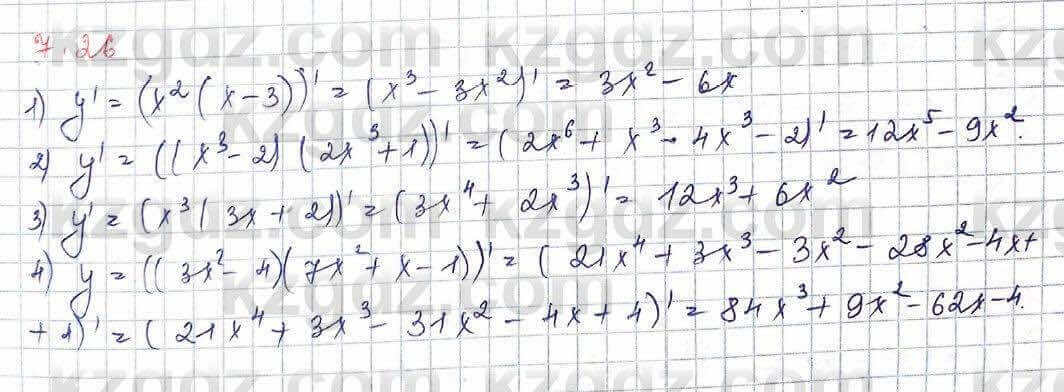 7.26
1) y' = (x²(x-3))' = (x³ - 3x²)' = 3x² - 6x
2) y' = ((x³-2)(2x³+1))' = (2x⁶ + x³ - 4x³ - 2)' = 12x⁵ - 9x².
3) y' = (x³(3x+2))' = (3x⁴ + 2x³)' = 12x³ + 6x²
4) y = ((3x²-4)(7x²+x-1))' = (21x⁴ + 3x³ - 3x² - 28x² - 4x +
+ 4)' = (21x⁴ + 3x³ - 31x² - 4x + 4)' = 84x³ + 9x² - 62x - 4.